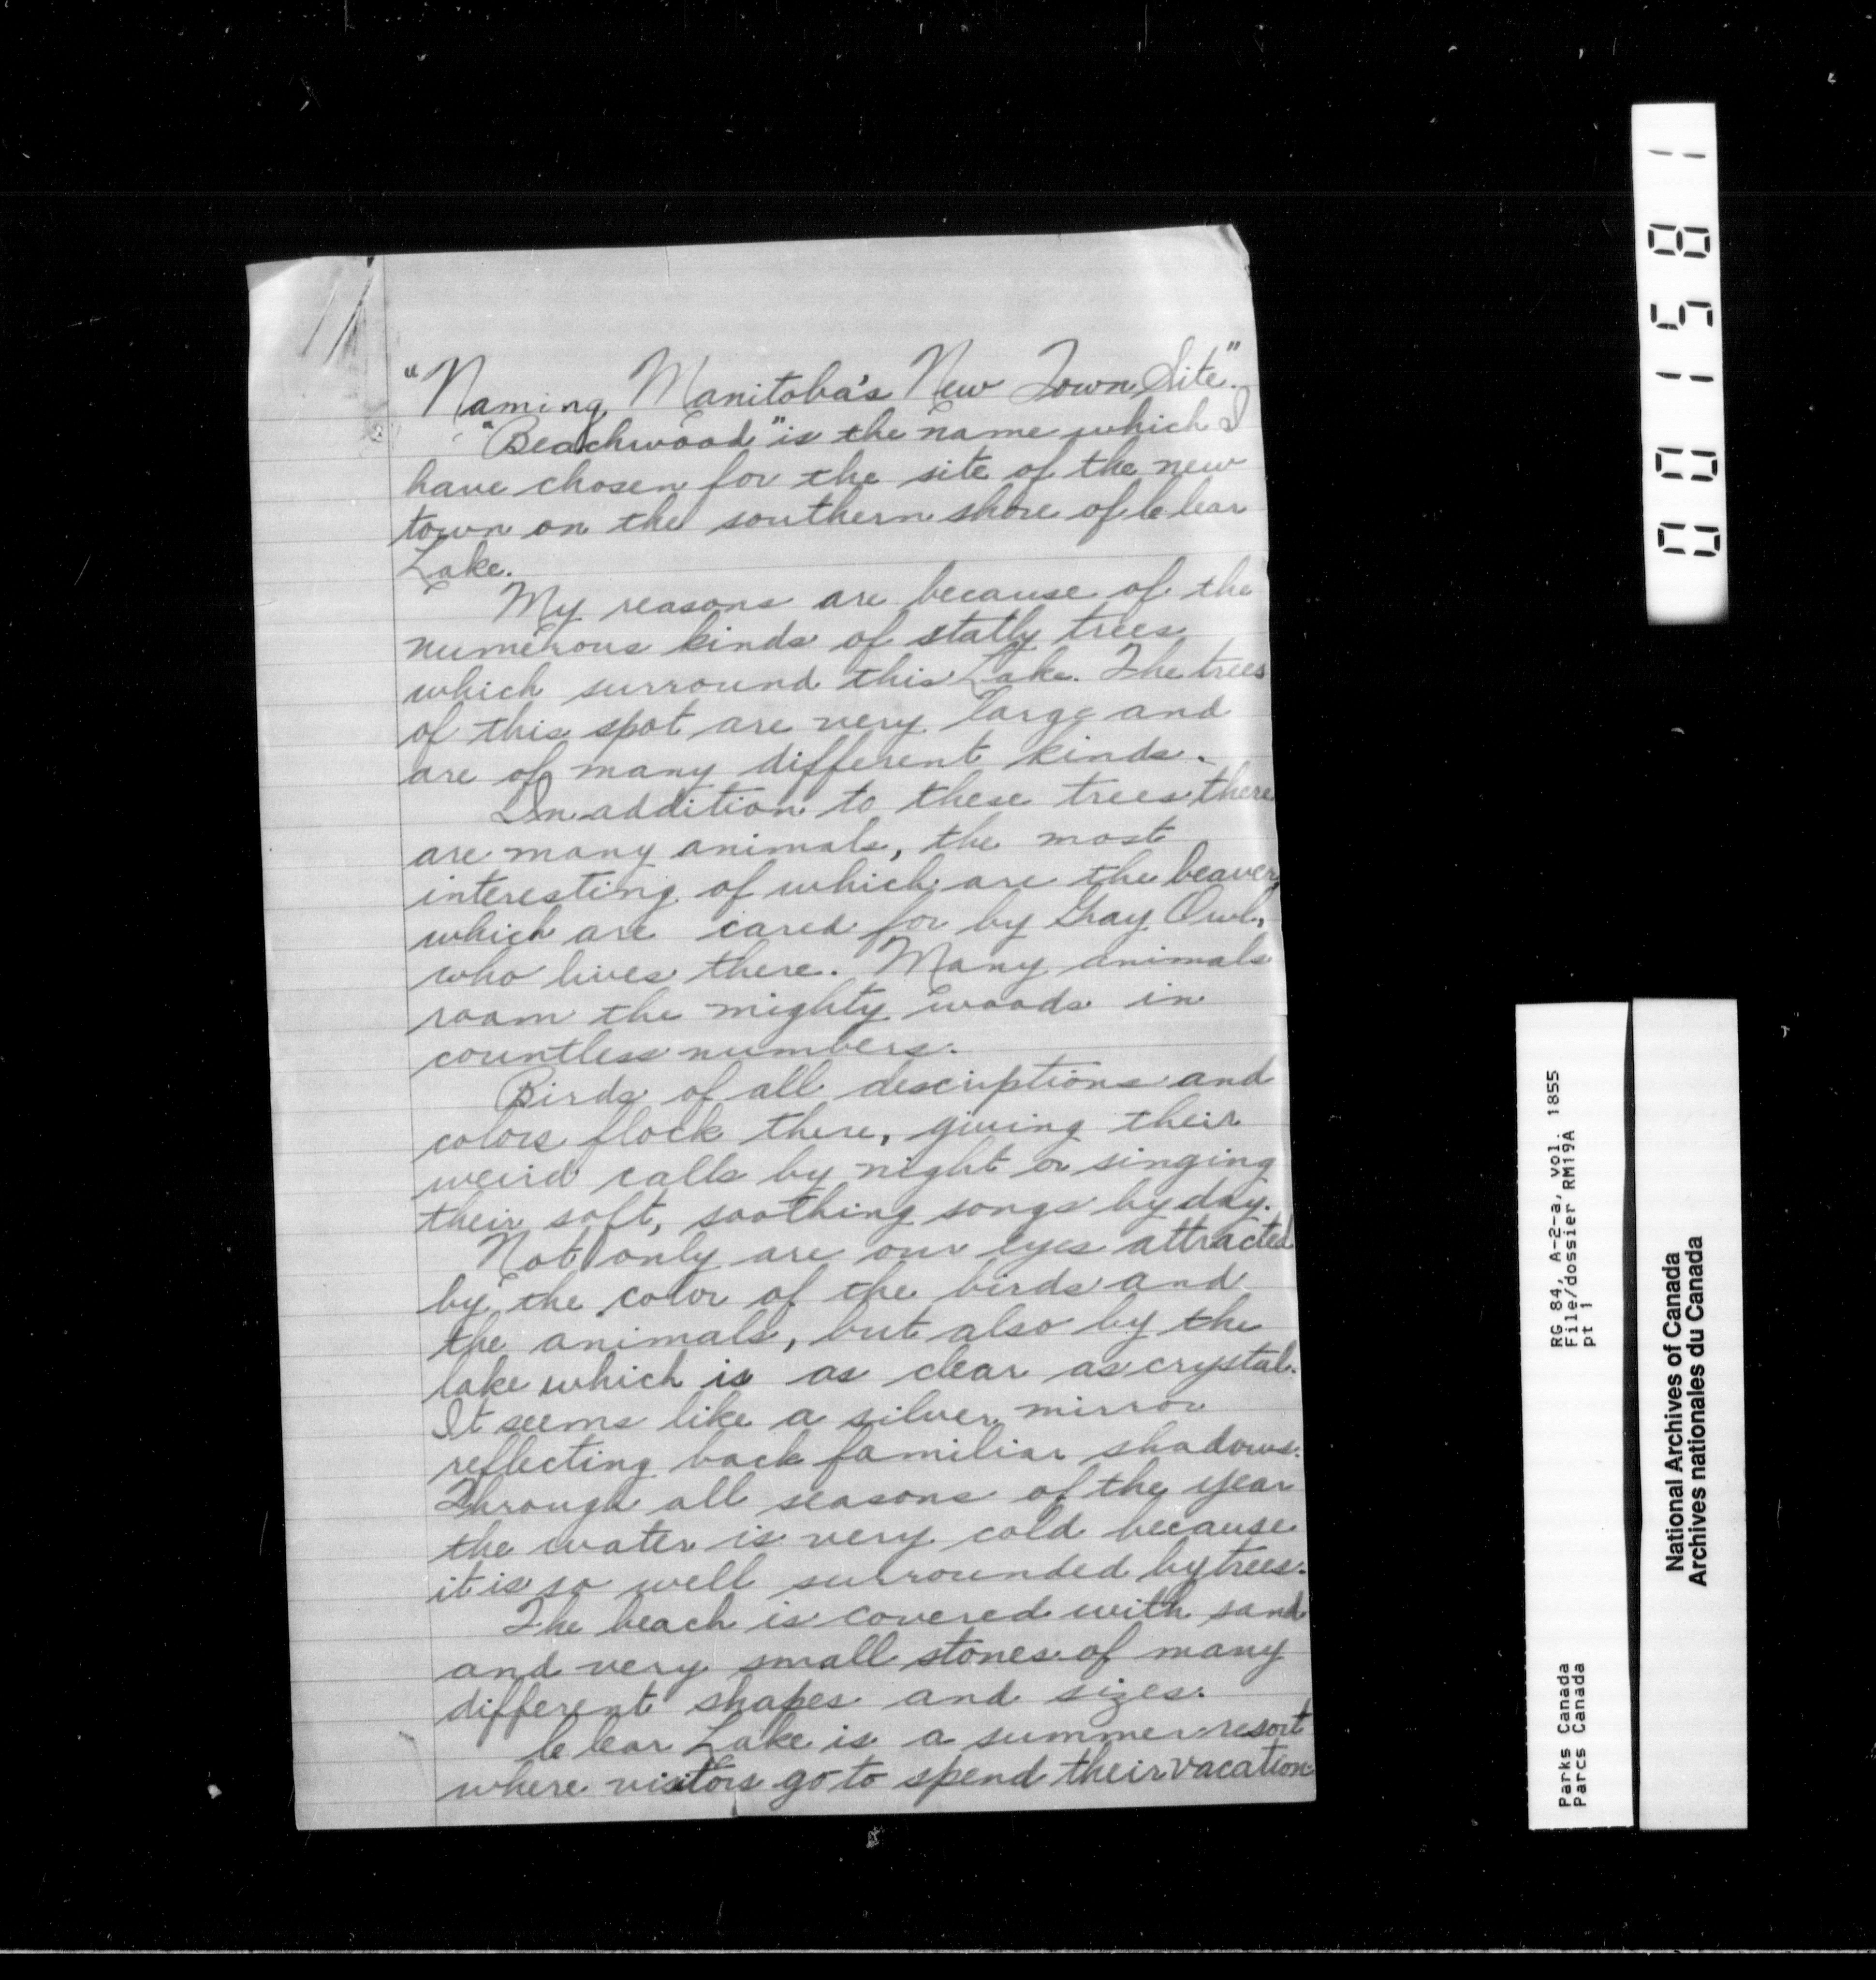 "Naming Manitoba's New Town Site".
"Beachwood" is the name which I
have chosen for the site of the new
town on the southern shore of Clear
Lake.
My reasons are because of the
numerous kinds of statly trees
which surround this Lake. The trees
of this spot are very large and
are of many different kinds.
In addition to these trees there
are many animals, the most
interesting of which are the beaver
which are cared for by Gray Owl,
who lives there. Many animals
roam the mighty woods in
countless numbers.
Birds of all descriptions and
colors flock there, giving their
weird calls by night or singing
their soft, soothing songs by day.
Not only are our eyes attracted
by the color of the birds and
the animals, but also by the
lake which is as clear as crystal.
It seems like a silver mirror
reflecting back familiar shadows.
Through all seasons of the year
the water is very cold because
it is so well surrounded by trees.
The beach is covered with sand
and very small stones of many
different shapes and sizes.
Clear Lake is a summer resort
where visitors go to spend their vacation
001581
RG 84, A-2-a, vol. 1855
File/dossier RM19A
pt 1
Parks Canada
Parcs Canada
National Archives of Canada
Archives nationales du Canada